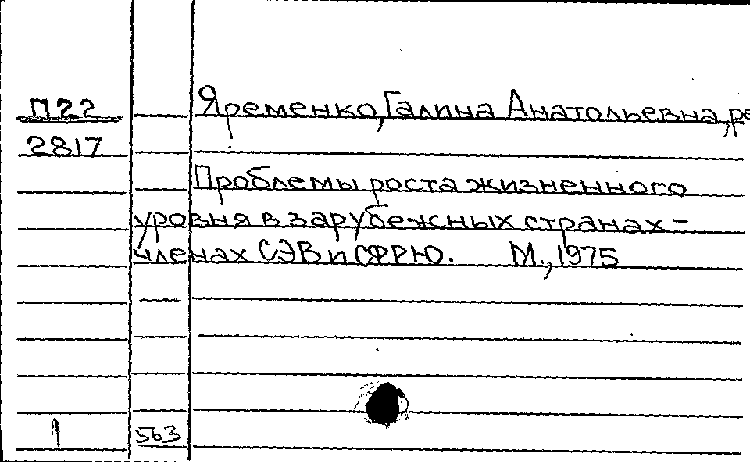 П22 Яременко, Галина Анатольевна, ре
2817
Проблемы роста жизненного
уровня в зарубежных странах-
членах СЭВ и СФРЮ. М., 1975
1 563